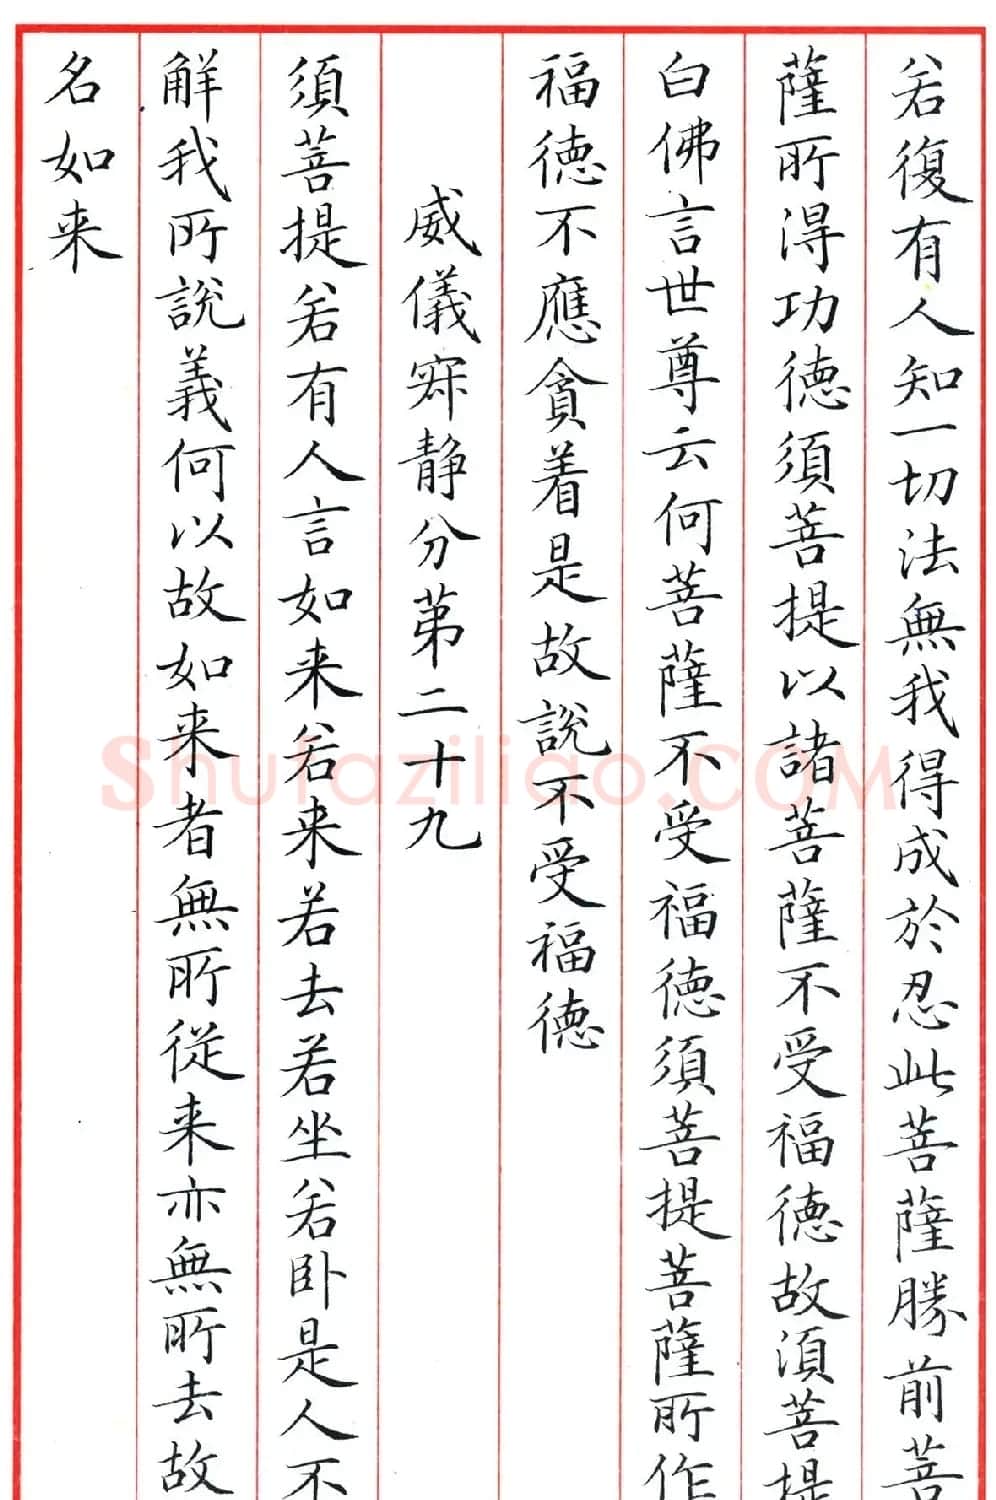 若復有人知一切法無我得成於忍此菩薩勝前菩
薩所得功德須菩提以諸菩薩不受福德故須菩提
白佛言世尊云何菩薩不受福德須菩提菩薩所作
福德不應貪着是故説不受福德
威儀寂静分第二十九
須菩提若有人言如来若来若去若坐若卧是人不
解我所説義何以故如来者無所從来亦無所去故
名如来
Shufaziliao.COM